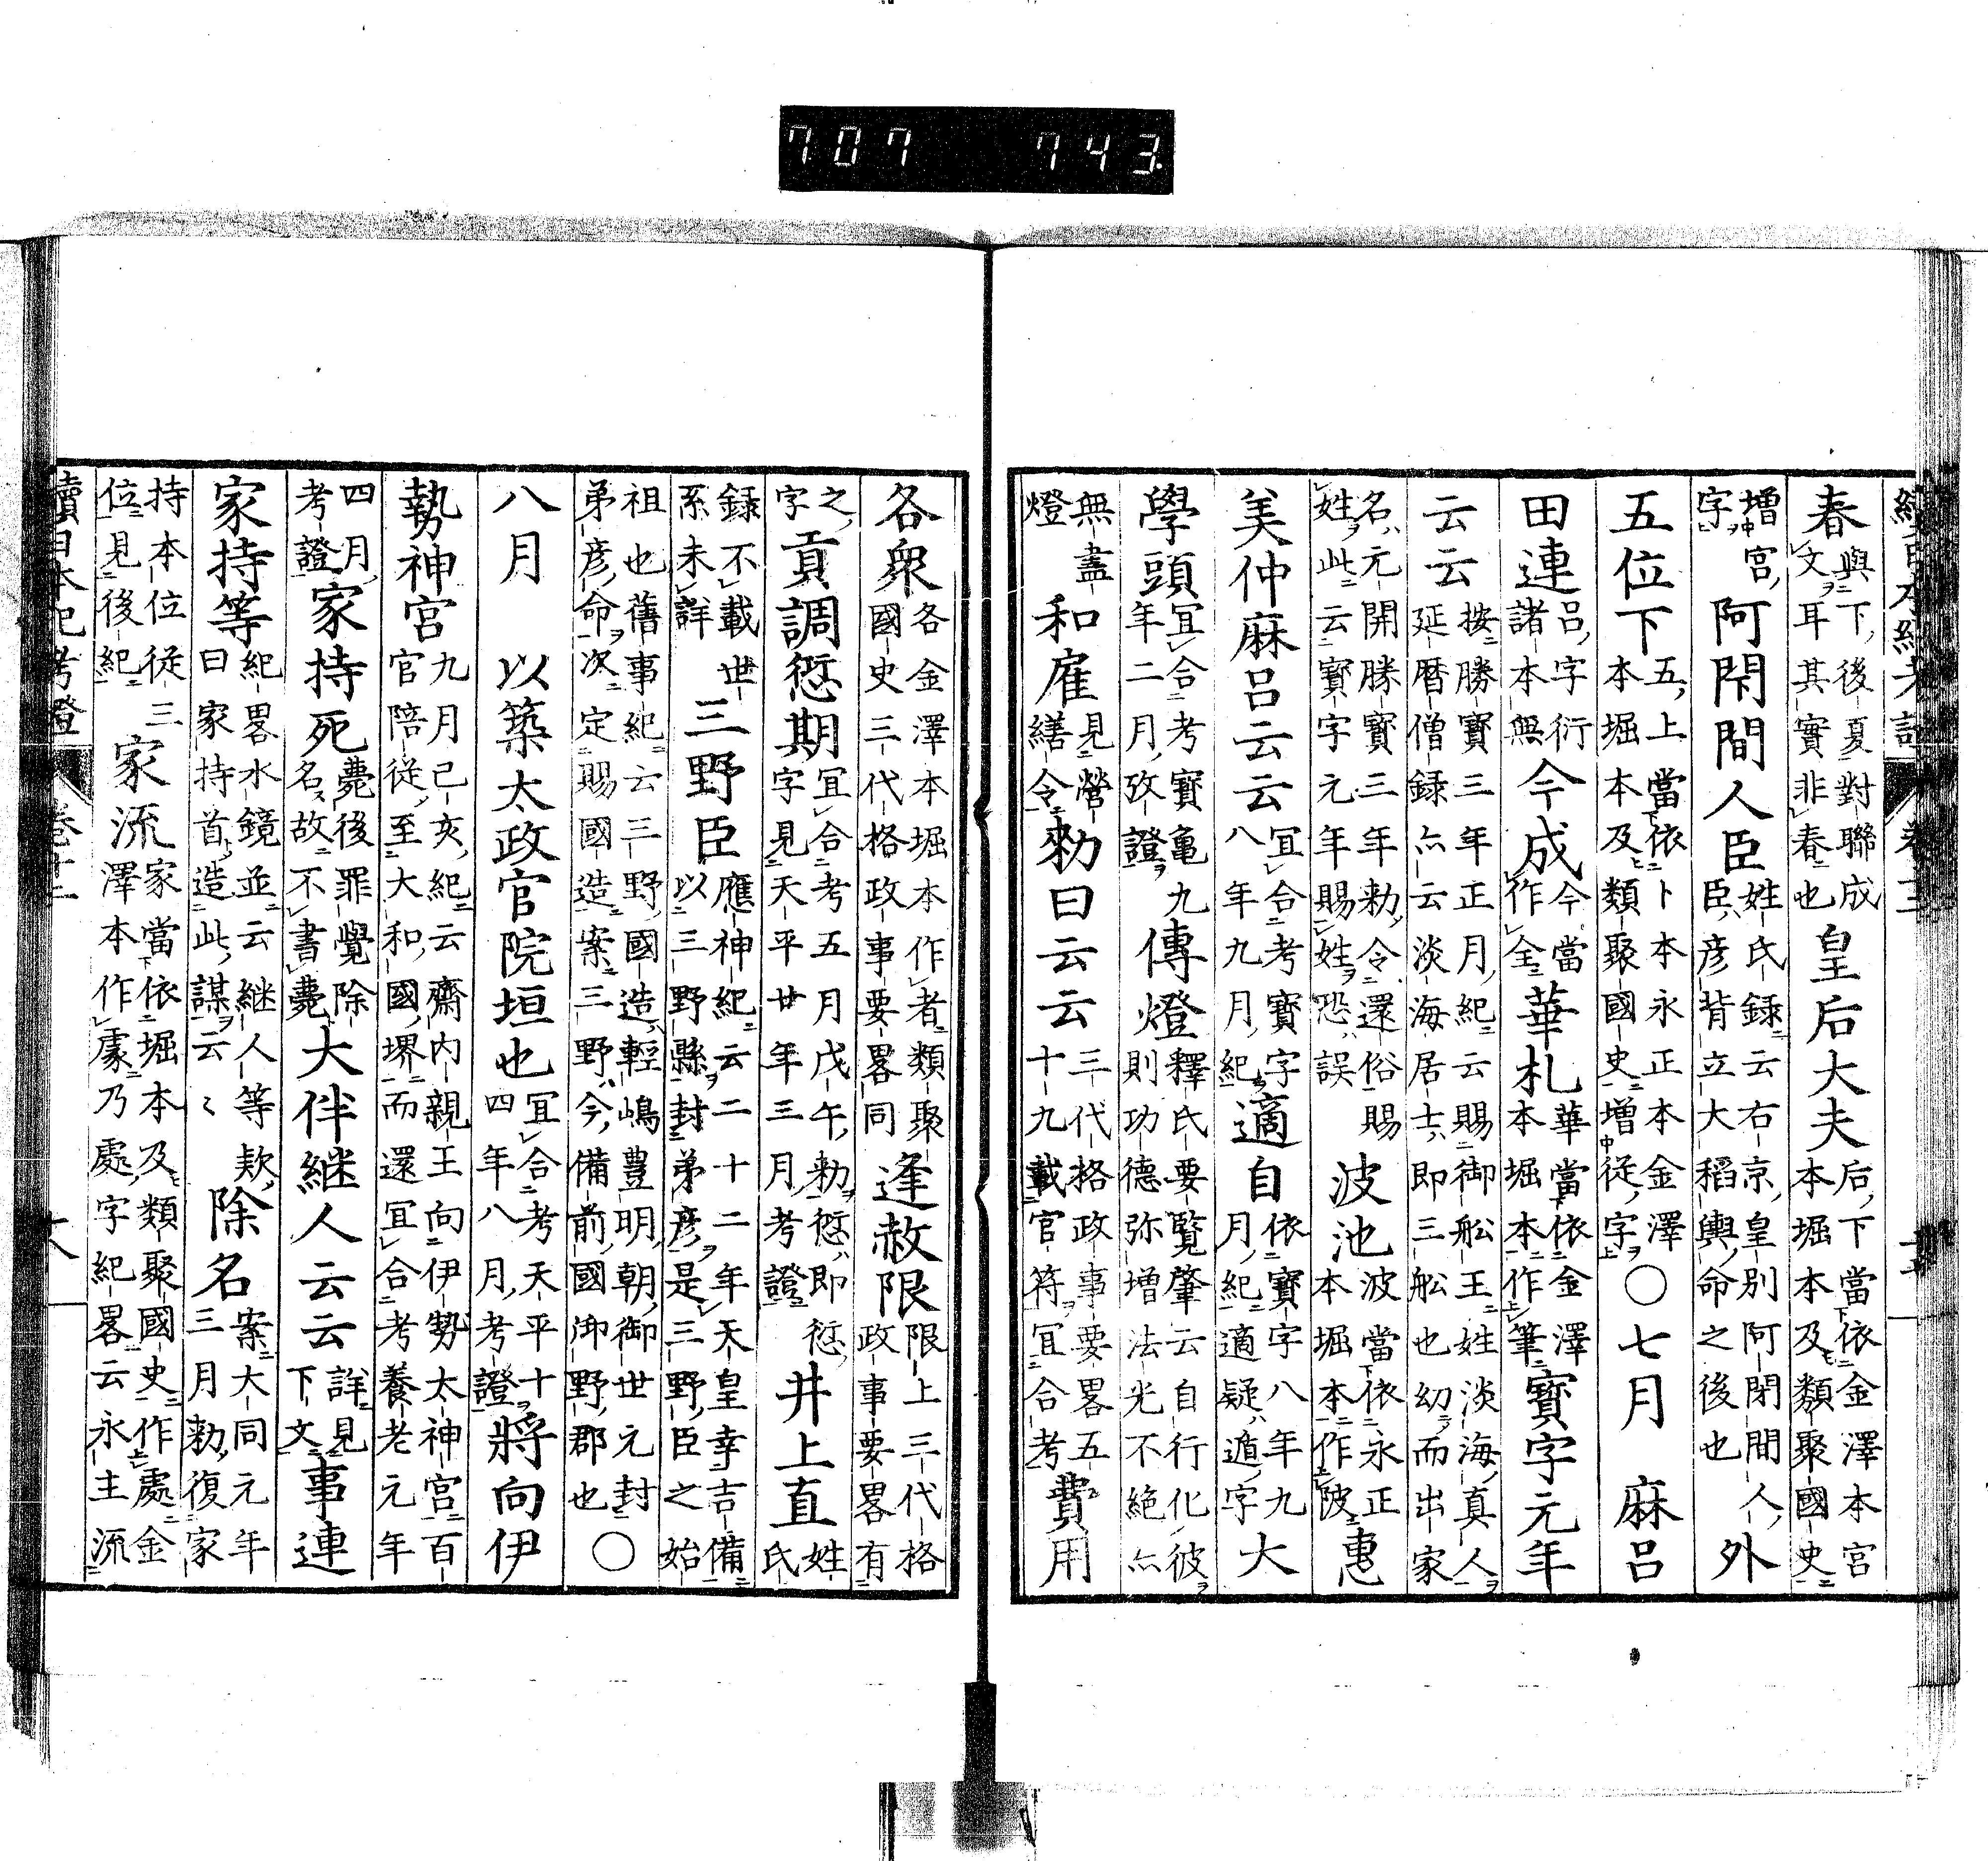 707 743
春與下後夏對聯成文耳其實非春也 皇后大夫后下當依金澤本宮本堀本及類聚國史
增宮字 阿閇間人臣姓氏録云右京皇別阿閉間人臣彦背立大稻輿命之後也 外
五位下五上當依卜本永正本金澤本堀本及類聚國史增從字 〇七月 麻呂
田連呂字衍諸本無 今成今當作全 華札華當依金澤本堀本作筆 寶字元年
云云按勝寶三年正月紀云賜御舩王姓淡海真人延曆僧録亦云淡海居士即三舩也幻而出家
名元開勝寶三年勅令還俗賜姓此云寶字元年賜姓恐誤 波池波當依永正本堀本作陂 惠
美仲麻呂云云宜合考寶字八年九月紀 適自依寶字八年九月紀適疑遁字 大
學頭宜合考寶亀九年二月攷證 傳燈釋氏要覧肇云自行化彼則功德弥增法光不絶亦
無盡燈 和雇見營繕令 勅曰云云三代格政事要畧五十九載官符宜合考 費用
各衆各金澤本堀本作者類聚國史三代格政事要畧同 逢赦限限上三代格政事要畧有
之字 貢調愆期宜合考五月戊午勅愆即愆字見天平廿年三月考證 井上直姓氏
録不載世系未詳 三野臣應神紀云二十二年天皇幸吉備以三野縣封弟彦是三野臣之始
祖也舊事紀云三野國造輕嶋豊明朝御世元封弟彦命次定賜國造案三野今備前國御野郡也 〇
八月 以築太政官院垣也宜合考天平十四年八月考證 將向伊
勢神宮九月己亥紀云齋內親王向伊勢太神宮百官陪從至大和國堺而還宜合考養老元年
四月考證 家持死薨後罪覺除名故不書薨 大伴継人云云詳見下文 事連
家持等紀畧水鏡並云継人等款曰家持首造此謀云〻 除名案大同元年三月勅復家
持本位從三位見後紀 家流家當依堀本及類聚國史作處金澤本作䖏乃處字紀畧云永主流
續日本紀考證 卷十二